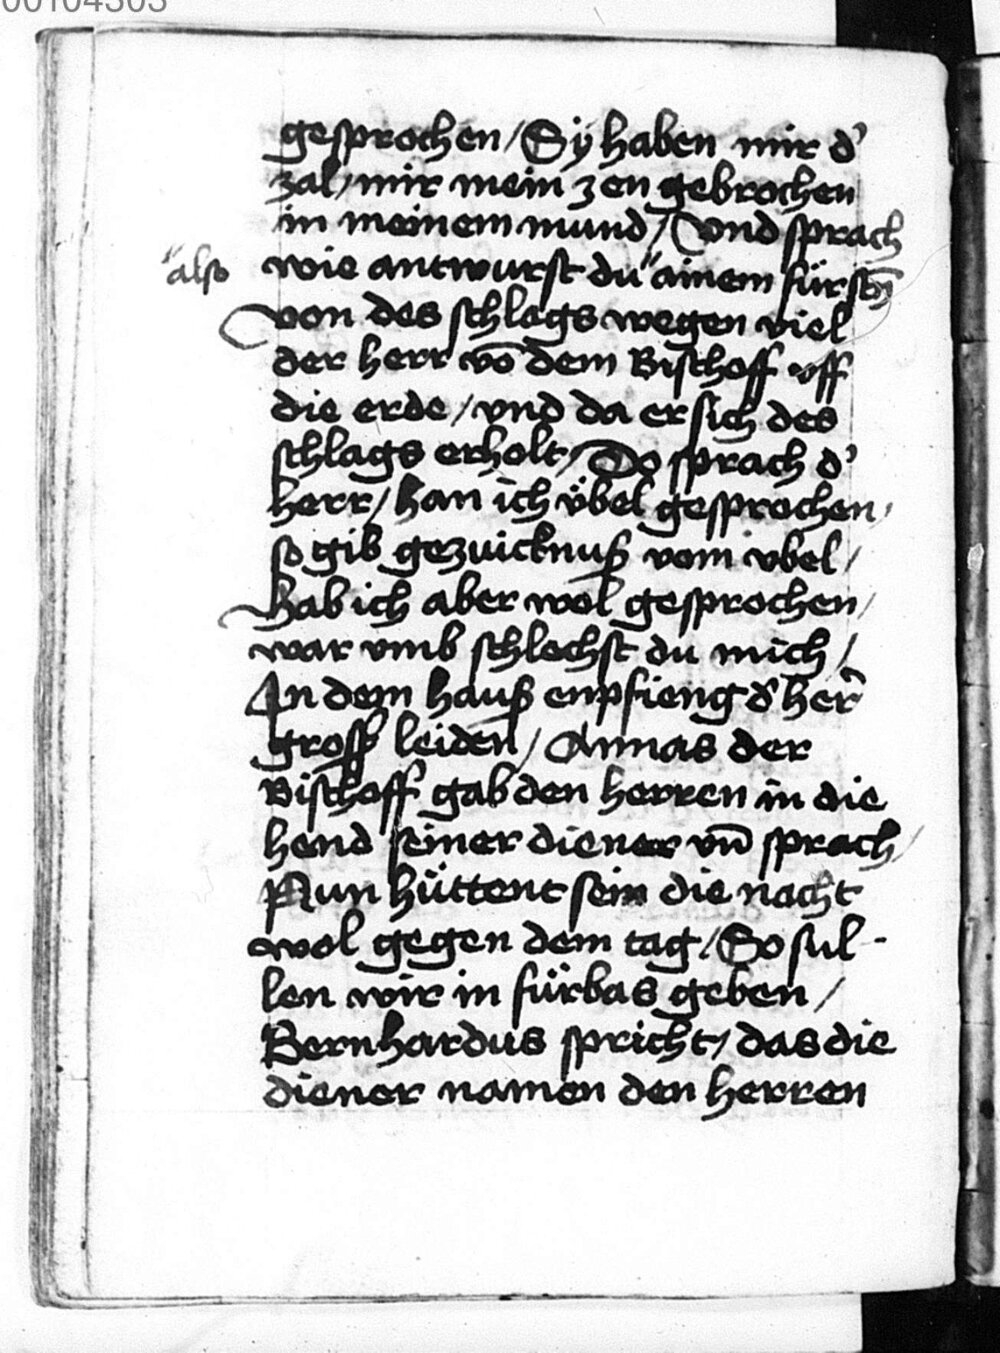 00104303
gesprochen / Sÿ haben mir d'
zal / mir mein zen gebrochen
in meinem mund / Vnd sprach
"also wie antwurst du " ainem fürstn̄
von des schlags wegen viel
der herr vō dem Bischoff vff
die erde / vnd da er sich des
schlags erholt / Do sprach d'
herr / han ich v̈bel gesprochen /
so gib gezuicknuß vom vbel /
Hab ich aber wol gesprochen /
war vmb schlechst du mich /
In dem hauß enpfieng d' her̄
gross leiden / Annas der
Bischoff gab den herren in die
hend seiner diener vn̄ sprach /
Nun hüttent sein die nacht
wol gegen dem tag / So sul-
len wir in fürbas geben /
Bernhardus spricht / das die
diener namen den herren